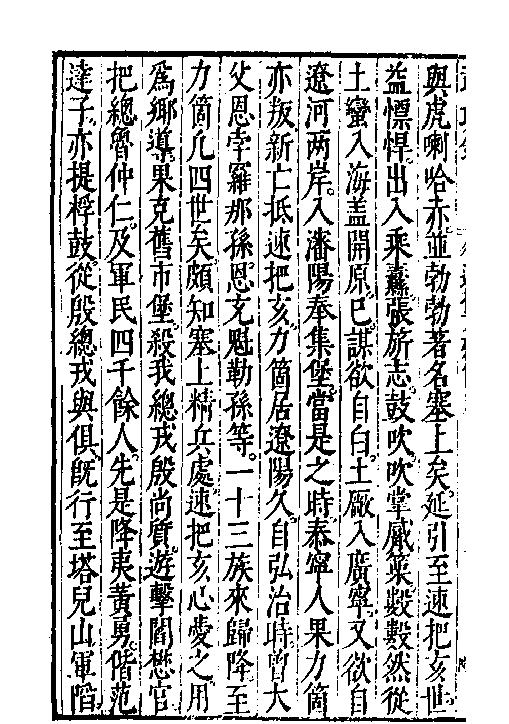 與虎喇哈赤並勃勃著名塞上矣。延引至速把亥世。
益慓悍。出入乘纛。張旂志。鼓吹。吹掌觱篥。數數然從
土蠻入海盖開原。已謀欲自白土廠入廣寧。又欲自
遼河两岸。入瀋陽奉集堡。當是之時泰寧人果力箇
亦叛新亡抵速把亥。力箇居遼陽久。自弘治時曾大
父恩孛羅那孫恩克魁勒孫等。一十三族來歸降。至
力箇凡四世矣。頗知塞上精兵處。速把亥心愛之。用
爲鄉導。果克舊市堡。殺我總戎殷尚質。遊擊閻懋官。
把總曾仲仁。及軍民四千餘人。先是降夷黃勇。偕范
達子。亦提桴鼓從殷總戎與俱。旣行至塔兒山軍陷